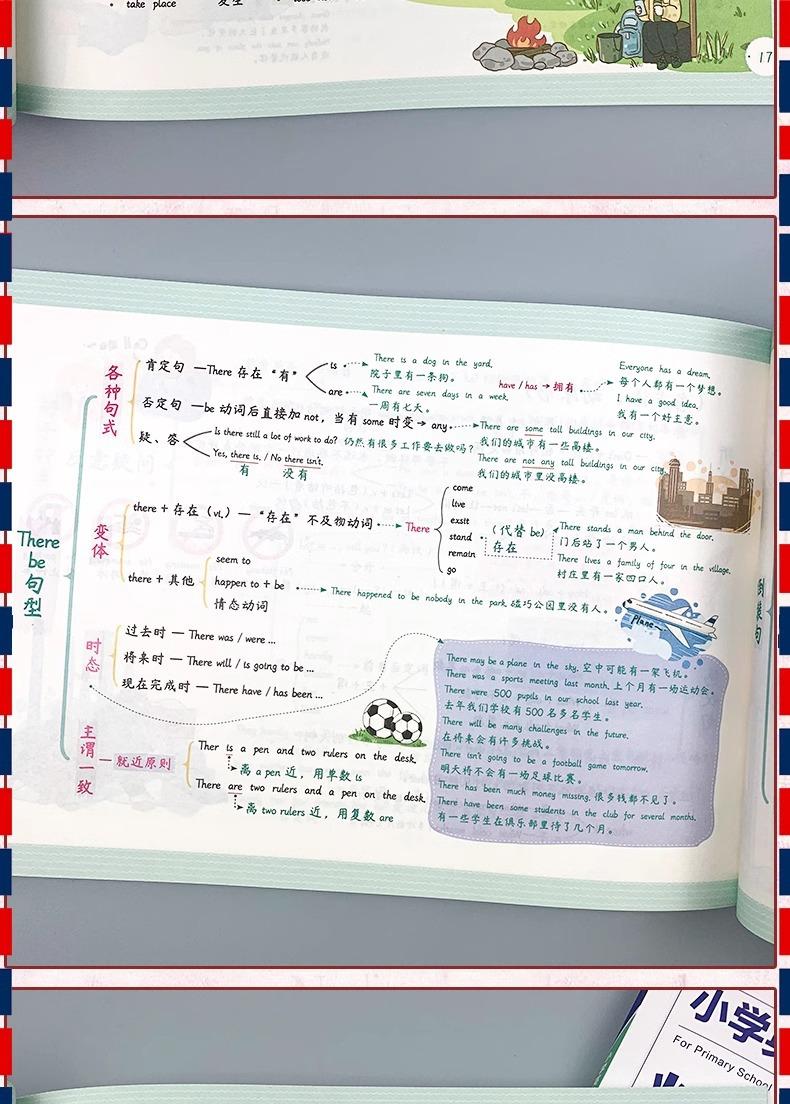 take place
17
各种句式
肯定句 —There 存在 “有”
is
There is a dog in the yard.
院子里有一条狗。
are
There are seven days in a week.
一周有七天。
have / has → 拥有
Everyone has a dream.
每个人都有一个梦想。
I have a good idea.
我有一个好主意。
否定句 —be 动词后直接加 not，当有 some 时变→ any
There are some tall buildings in our city.
我们的城市有一些高楼。
There are not any tall buildings in our city.
我们的城市里没高楼。
疑、答
Is there still a lot of work to do? 仍然有很多工作要去做吗?
Yes, there is. / No there isn't.
有 没有
There be 句型
变体
there + 存在（vi.）—“存在”不及物动词
There
come
live
exsit
stand
remain
go
（代替 be）
存在
There stands a man behind the door.
门后站了一个男人。
There lives a family of four in the village.
村庄里有一家四口人。
there + 其他
seem to
happen to + be
情态动词
There happened to be nobody in the park. 碰巧公园里没有人。
Plane
时态
过去时 — There was / were ...
将来时 — There will / is going to be ...
现在完成时 — There have / has been ...
There may be a plane in the sky. 空中可能有一架飞机。
There was a sports meeting last month. 上个月有一场运动会。
There were 500 pupils in our school last year.
去年我们学校有 500 名多名学生。
There will be many challenges in the future.
在将来会有许多挑战。
There isn't going to be a football game tomorrow.
明天将不会有一场足球比赛。
There has been much money missing. 很多钱都不见了。
There have been some students in the club for several months.
有一些学生在俱乐部里待了几个月。
主谓一致
就近原则
Ther is a pen and two rulers on the desk.
离 a pen 近，用单数 is
There are two rulers and a pen on the desk.
离 two rulers 近，用复数 are
倒装句
小学
For Primary School